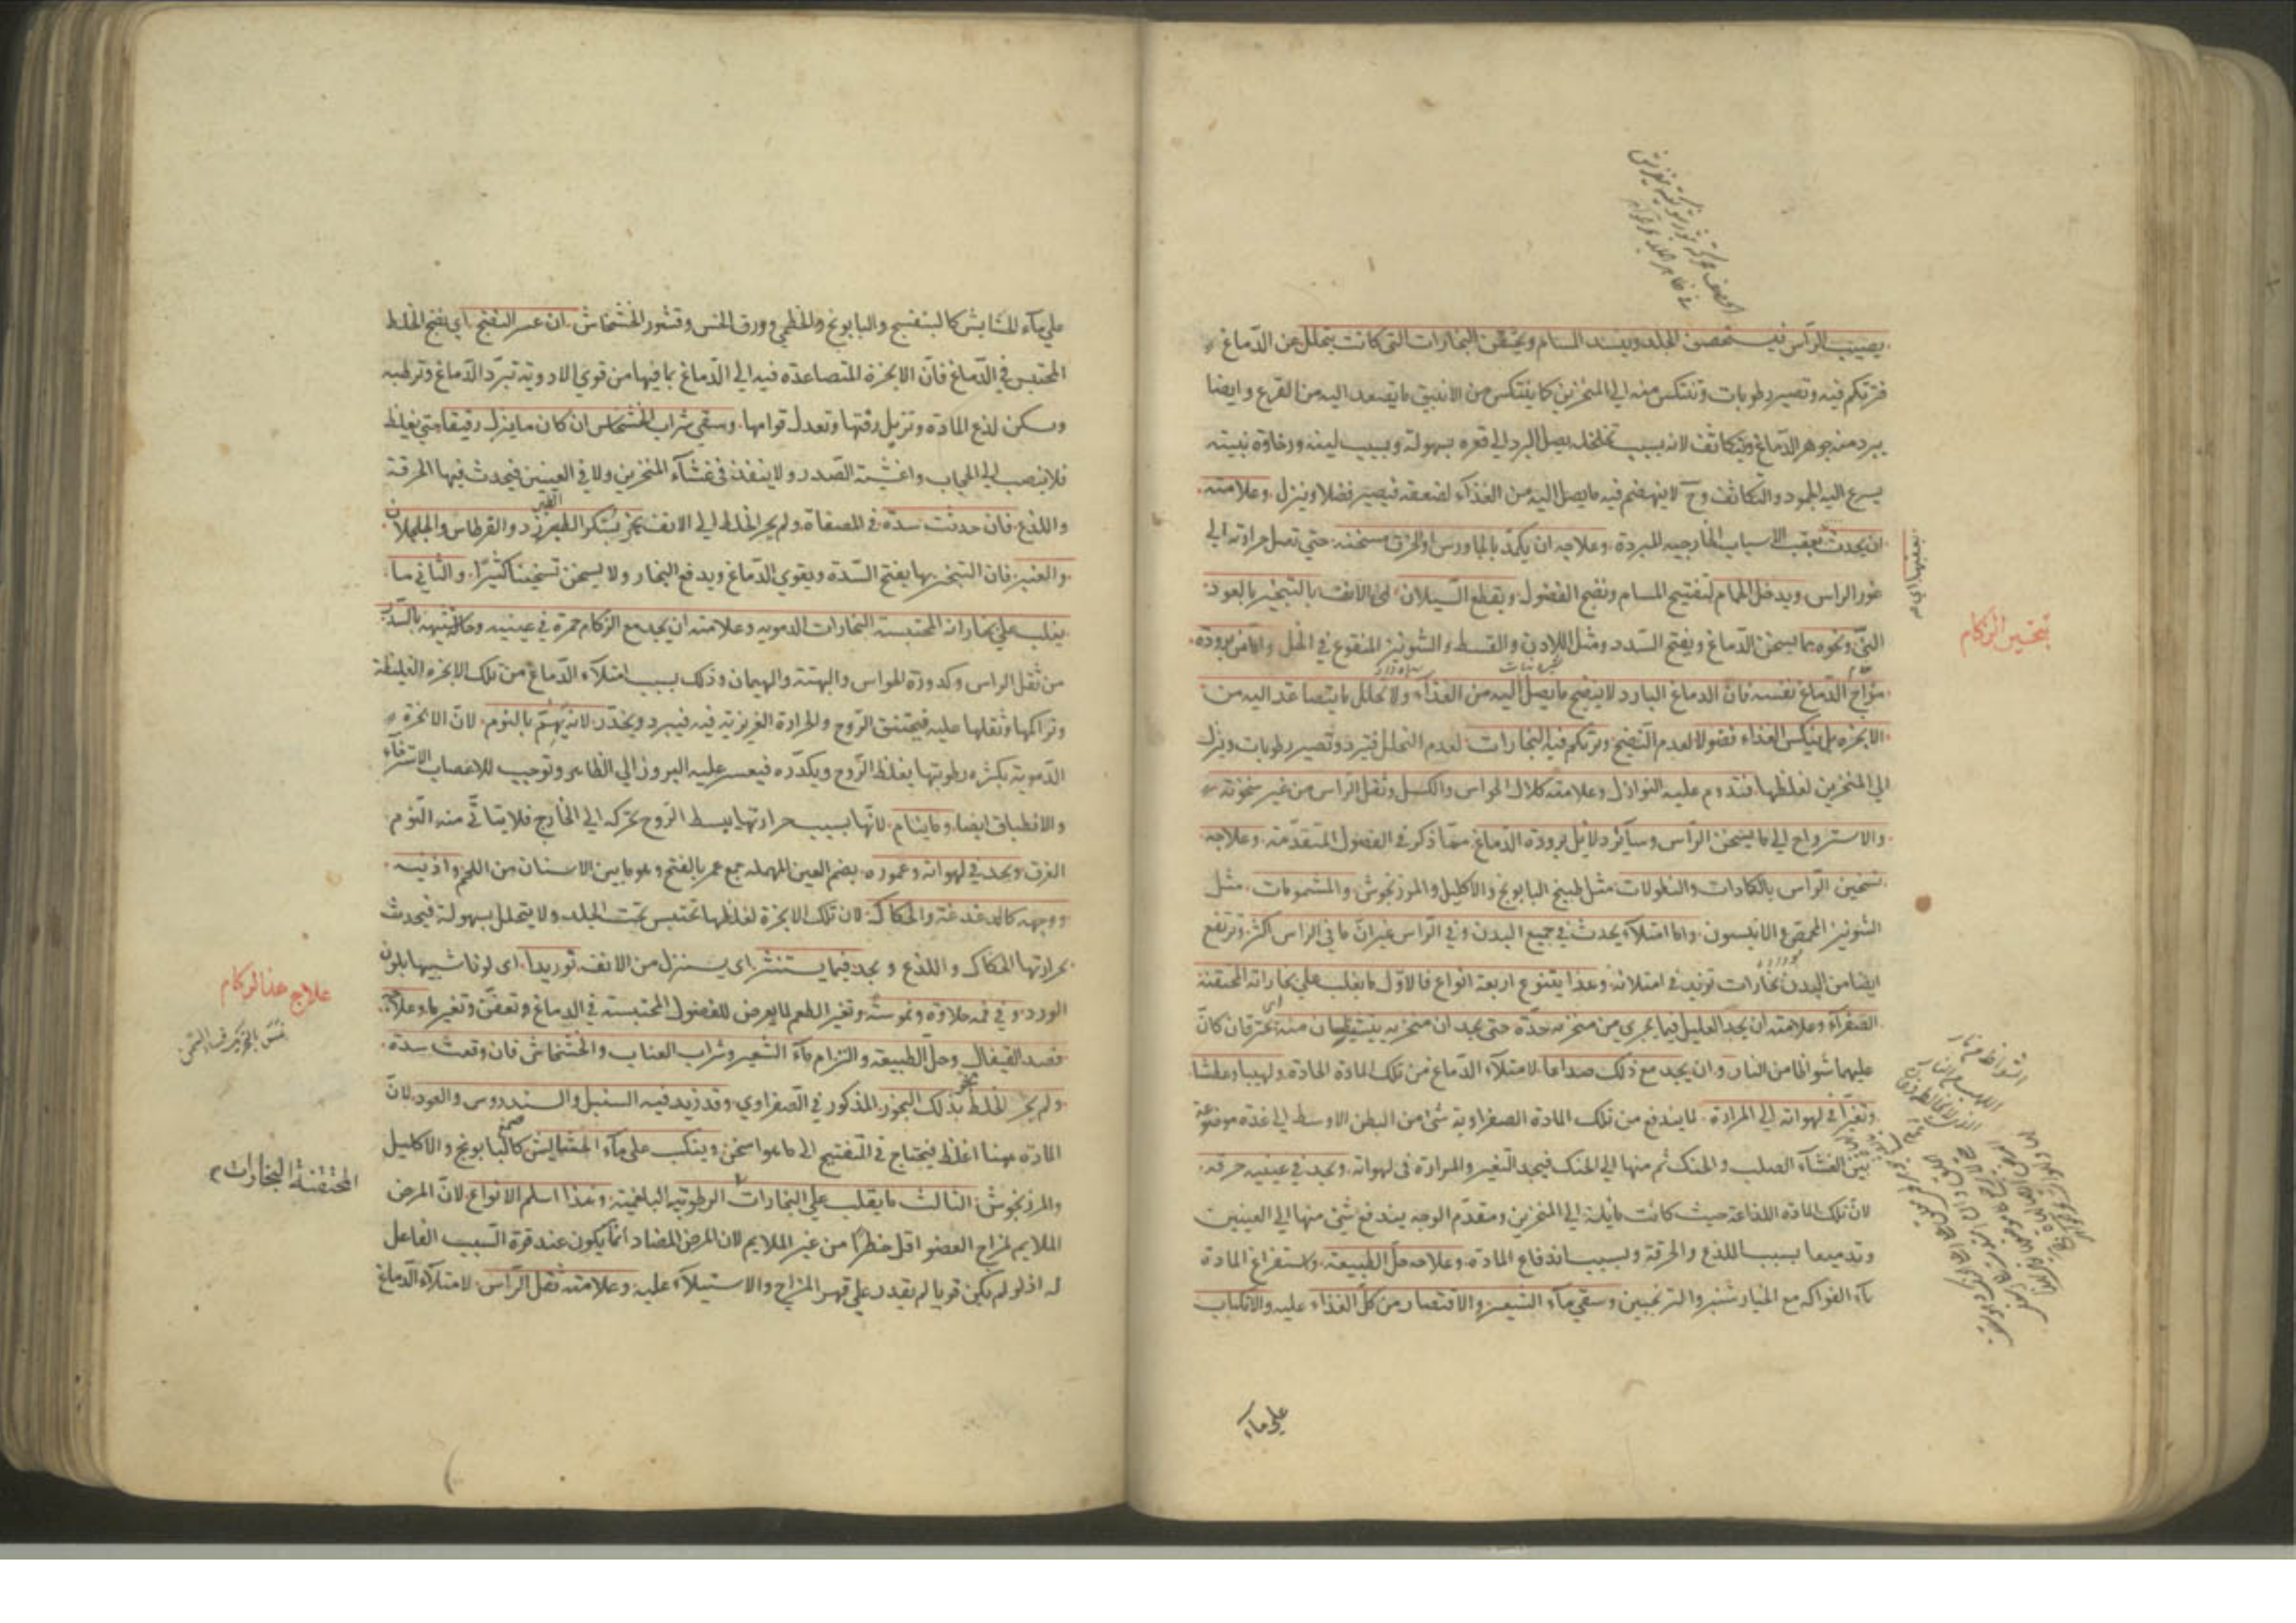 يصيب الرأس فيستحصف الجلد وينسد المسام ويحتقن البخارات التي كانت يتحلل من الدماغ
فتراكم فيه وتصير رطوبات وتنتكس منه الي المنخرين كما ينتكس من الانبيق ما يتصعد اليه من القرع وايضا
يبرد منه جوهر الدماغ ويتكاثف لانه بسبب تخلخله يصل البرد الي قعره بسهولة وبسبب لينه ورخاوة نبيته
يسرع اليه الجمود والتكاثف وح لا ينهضم فيه ما يصل اليه من الغذاء لضعفه فيصير فضلا وينزل وعلامته
ان يحدث بعقب الاسباب الخارجيه المبردة وعلاجه ان يكمد بالجاورس او الخرق مسخنة حتي تصل حرارته الي
غور الراس ويدخل الحمام لتفتيح المسام ونضج الفضول ويقطع السيلان الي الانف بالتبخير بالعود
الني ونحوه مما يسخن الدماغ ويفتح السدد ومثل اللادن والقسط والشونيز المنقوع في الخل واما من برودة
مزاج الدماغ نفسه فان الدماغ البارد لا ينضج ما يصل اليه من الغذاء ولا تحلل ما يتصاعد اليه من
الابخرة بل ينكس الغذاء فضولا لعدم النضج وتراكم فيه البخارات لعدم التحلل فتبرد وتصير رطوبات وينزل
الي المنخرين لغلظها فتدوم عليه النوازل وعلامته كلال الحواس والكسل وثقل الراس من غير سخونة
والاسترواح الي ما يسخن الرأس وسائر دلايل برودة الدماغ مما ذكر في الفصول المتقدمة وعلاجه
تسخين الرأس بالكمادات والنطولات مثل طبيخ البابونج والاكليل والمرزنجوش والمشمومات مثل
الشونيز المحمص والانيسون واما امتلاء يحدث في جميع البدن وفي الرأس غير ان ما في الراس اكثر وترتفع
ايضا من البدن بخارات تزيد في امتلائه وهذا يتنوع اربعة انواع فالاول ما يغلب علي بخاراته المحتقنة
الصفراء وعلامته ان يجد العليل فيما يجري من منخره حدة حتي يجد ان منخريه منه يحترقان كان
عليهما شواظا من النار وان يجد مع ذلك صداعا لامتلاء الدماغ من تلك المادة الحادة ولهيبا وعطشا
وتغيرا في لهواته الي المرارة لما يندفع من تلك المادة الصفراوية شئ من البطن الاوسط الي غدة موضوعة
بين الغشاء الصلب والحنك ثم منها الي الحنك فيجد التغير والمرارة في لهواته ويجد في عينيه حرقة
لان تلك المادة اللذاعة حيث كانت مايلة الي المنخرين ومقدم الوجه يندفع شئ منها الي العينين
وتدميعا بسبب اللذع والحرقة وبسبب اندفاع المادة وعلاجه حل الطبيعة واستفراغ المادة
بماء الفواكه مع الخيارشنبر والترنجبين وسقي ماء الشعير والاقتصار من كل الغذاء عليه والانكباب
علي ماء
تسخين الزكام
علي ماء الحشايش كالبنفسج والبابونج والخطمي وورق الخس وقشور الخشخاش ان عسر النضج اي نضج الخلط
المحتبس في الدماغ فان الابخرة المتصاعدة فيه الي الدماغ بما فيها من قوي الادوية تبرد الدماغ وترطبه
ويسكن لذع المادة وتزيل رقتها وتعدل قوامها وسقي شراب الخشخاش ان كان ما ينزل رقيقا حتي يغلظ
فلا ينصب الي الحجاب واغشية الصدر ولا ينفذ في غشاء المنخرين ولا في العينين فيحدث فيها الحرقة
واللذع فان حدثت سدة في المصفاة ولم يجر الخلط الي الانف بخر بسكر الطبرزد والقرطاس والجلجلان
والعنبر فان التبخر بها يفتح السدة ويقوي الدماغ ويدفع البخار ولا يسخن تسخينا كثيرا والثاني ما
يغلب علي بخاراته المحتبسة البخارات الدمويه وعلامته ان يجد مع الزكام حمرة في عينيه وحالة شبيهة بالسدر
من ثقل الراس وكدورة الحواس والبهتة والهيمان وذلك بسبب امتلاء الدماغ من تلك الابخره الغليظة
وتراكمها وثقلها عليه فيختنق الروح والحرارة الغريزية فيه فيبرد ويخدر لانه يهتم بالنوم لان الابخرة
الدموية بكثرة رطوبتها يغلظ الروح ويكدره فيعسر عليه البروز الي الظاهر وتوجب للاعصاب الاسترخاء
والانطباق ايضا وما ينام لانها بسبب حرارتها يبسط الروح تحركه الي الخارج فلا يتأتي منه النوم
الغرق ويجد في لهواته وعموره بضم العين المهملة جمع عمر بالفتح وهو ما بين الاسنان من اللحم واذنيه
ووجهه كالدغدغة والحكاك لان تلك الابخرة لغلظها تحتبس تحت الجلد ولا يتحلل بسهولة فيحدث
بحرارتها الحكاك واللذع ويجد فيما يستنثر اي يستنزل من الانف توريدا اي لونا شبيها بلون
الورد وفي فمه حلاوة وتغير الطعم لما يعرض للفضول المحتبسة في الدماغ وتعفن وتغير ما وعلاجه
فصد القيفال وحل الطبيعة والتزام ماء الشعير وشراب العناب والخشخاش فان وقعت سدة
ولم يجر الخلط بخر بذلك البخور المذكور في الصفراوي وقد زيد فيه السنبل والسندروس والعود لان
المادة ههنا اغلظ فيحتاج في التفتيح الي ما هو اسخن وينكب علي ماء الحشايش كالبابونج والاكليل
والمرزنجوش الثالث ما يغلب علي البخارات الرطوبية البلغمية وهذا اسلم الانواع لان المرض
الملايم لمزاج العضو اقل خطرا من غير الملايم لان المرض المضاد انما يكون عند قوة السبب الفاعل
له اذ لو لم يكن قويا لم يقدر علي قهر المزاج والاستيلاء عليه وعلامته ثقل الرأس لامتلاء الدماغ
علاج هذا الزكام
المحتقنة البخارات